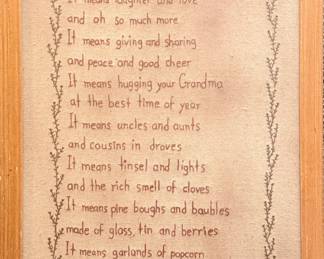 It means laughter and love
and oh so much more
It means giving and sharing
and peace and good cheer
It means hugging your Grandma
at the best time of year
It means uncles and aunts
and cousins in droves
It means tinsel and lights
and the rich smell of cloves
It means pine boughs and baubles
made of glass, tin and berries
It means garlands of popcorn